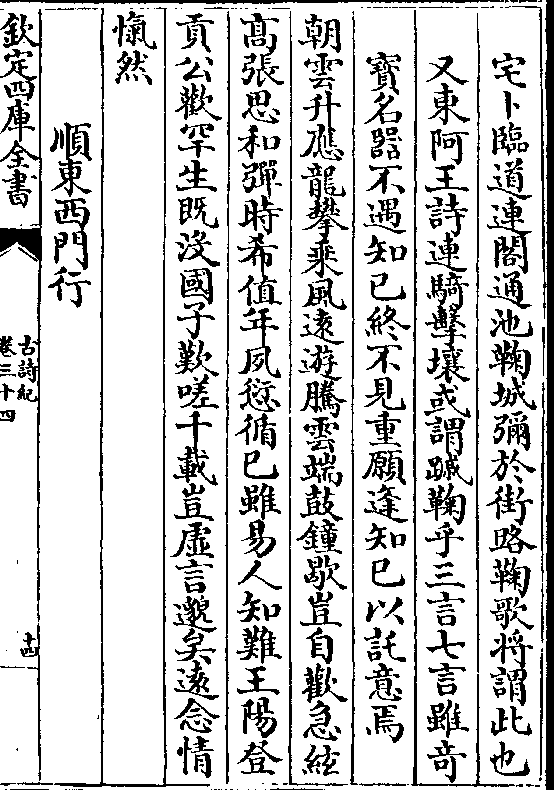 宅卜臨道連閣通池鞠城彌於街路鞠歌將謂此也
又東阿王詩連騎擊壤或謂蹴鞠乎三言七言雖竒
寶名器不遇知已終不見重願逢知已以託意焉
朝雲升應龍攀乘風逺遊騰雲端鼓鐘歇豈自歡急絃
髙張思和彈時希值年夙愆循已雖易人知難王陽登
貢公歡罕生既沒國子歎嗟千載豈虚言邈矣逺念情
愾然
順東西門行
欽定四庫全書
古詩紀
卷三十四
十四